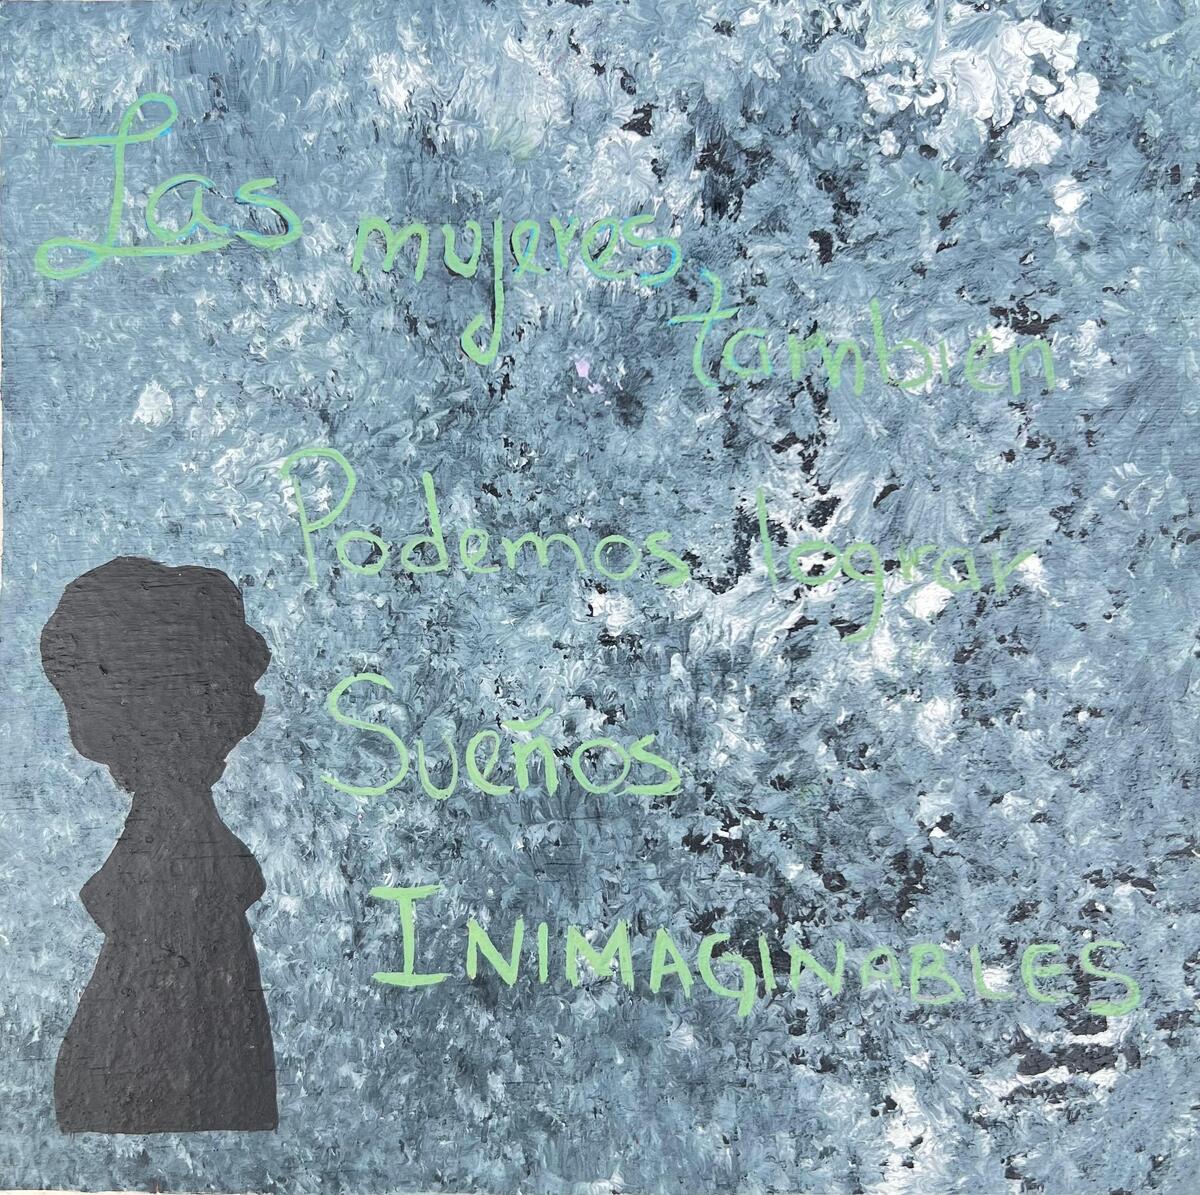 Las mujeres, tambien
Podemos lograr
Sueños
INIMAGINABLES